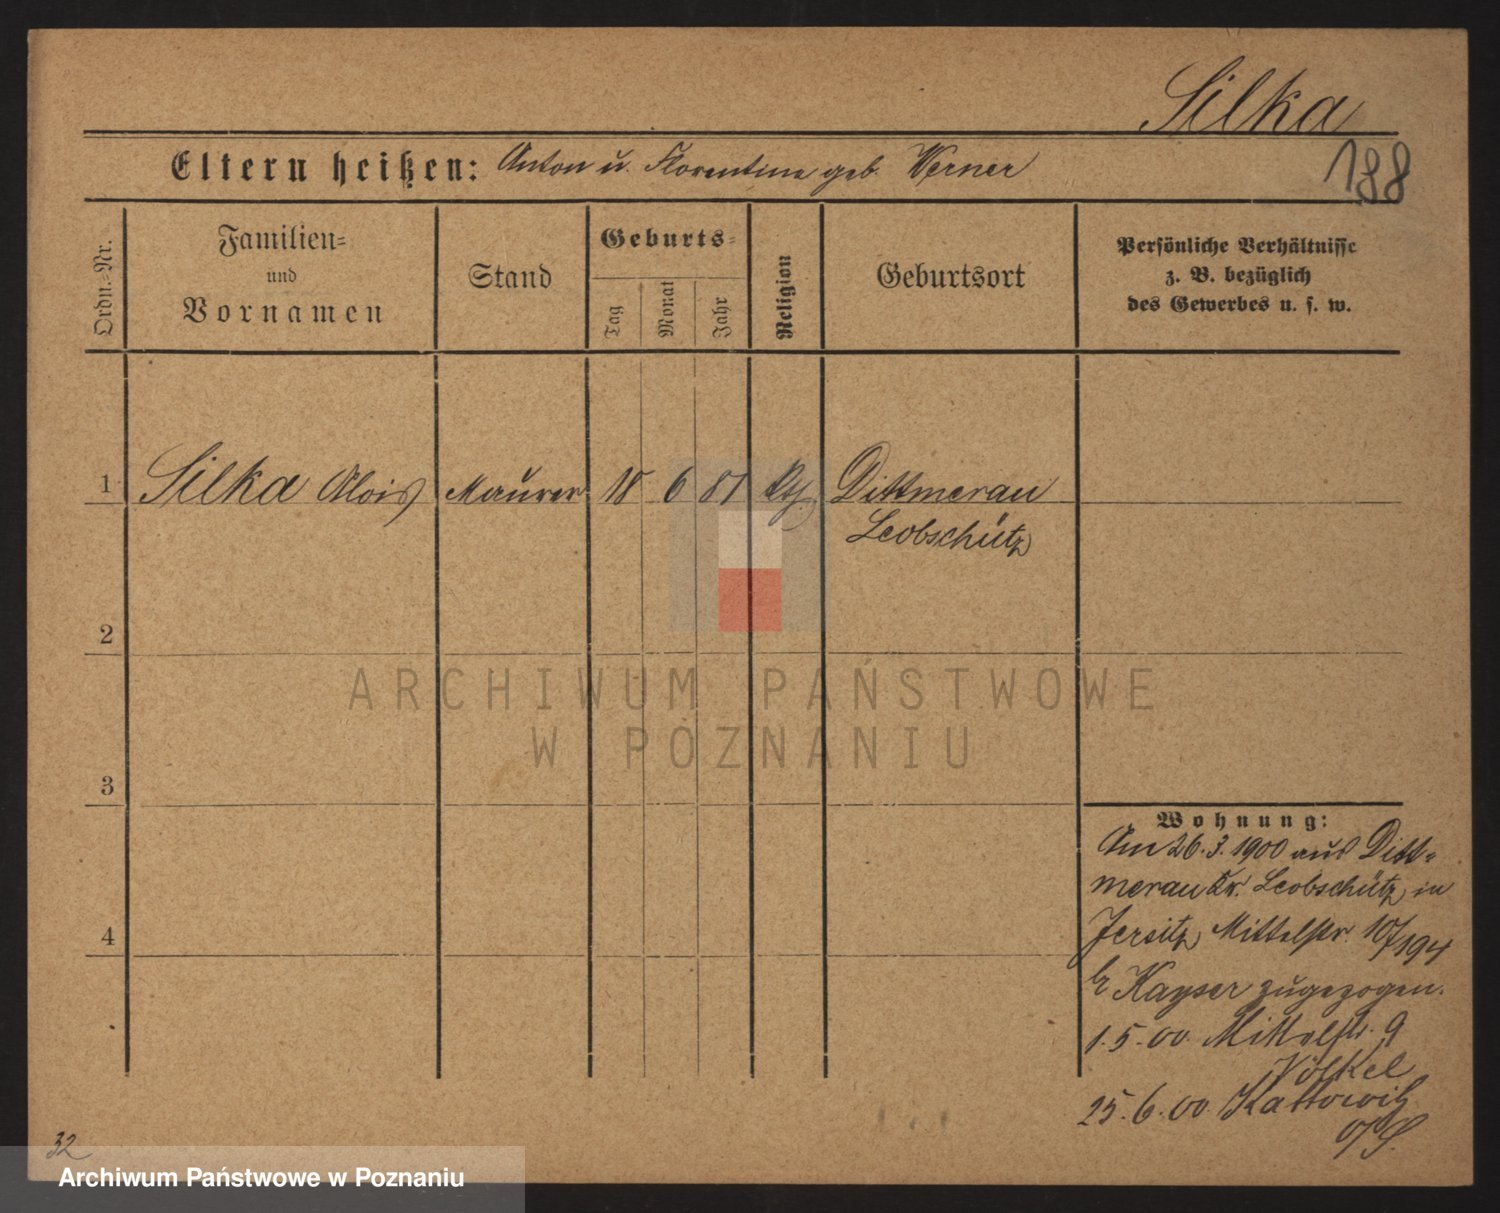 Silka
188
Eltern heißen: Anton u. Florentine geb. Werner
Ordn.-Nr.
Familien-
und
Vornamen
Stand
Geburts-
Tag
Monat
Jahr
Religion
Geburtsort
Persönliche Verhältnisse
z. B. bezüglich
des Gewerbes u. s. w.
1 Silka Alois Maurer 18 6 81 Dittmerau
Leobschütz
2
3
4
Wohnung:
Am 26.3.1900 aus Ditt-
merau Kr. Leobschütz in
Jersitz Mittelstr. 10/194
Kayser zugezogen.
1.5.00 Mittelstr. 9
Völkel
25.6.00 Kattowitz
O/S.
32
ARCHIWUM PAŃSTWOWE
W POZNANIU
Archiwum Państwowe w Poznaniu